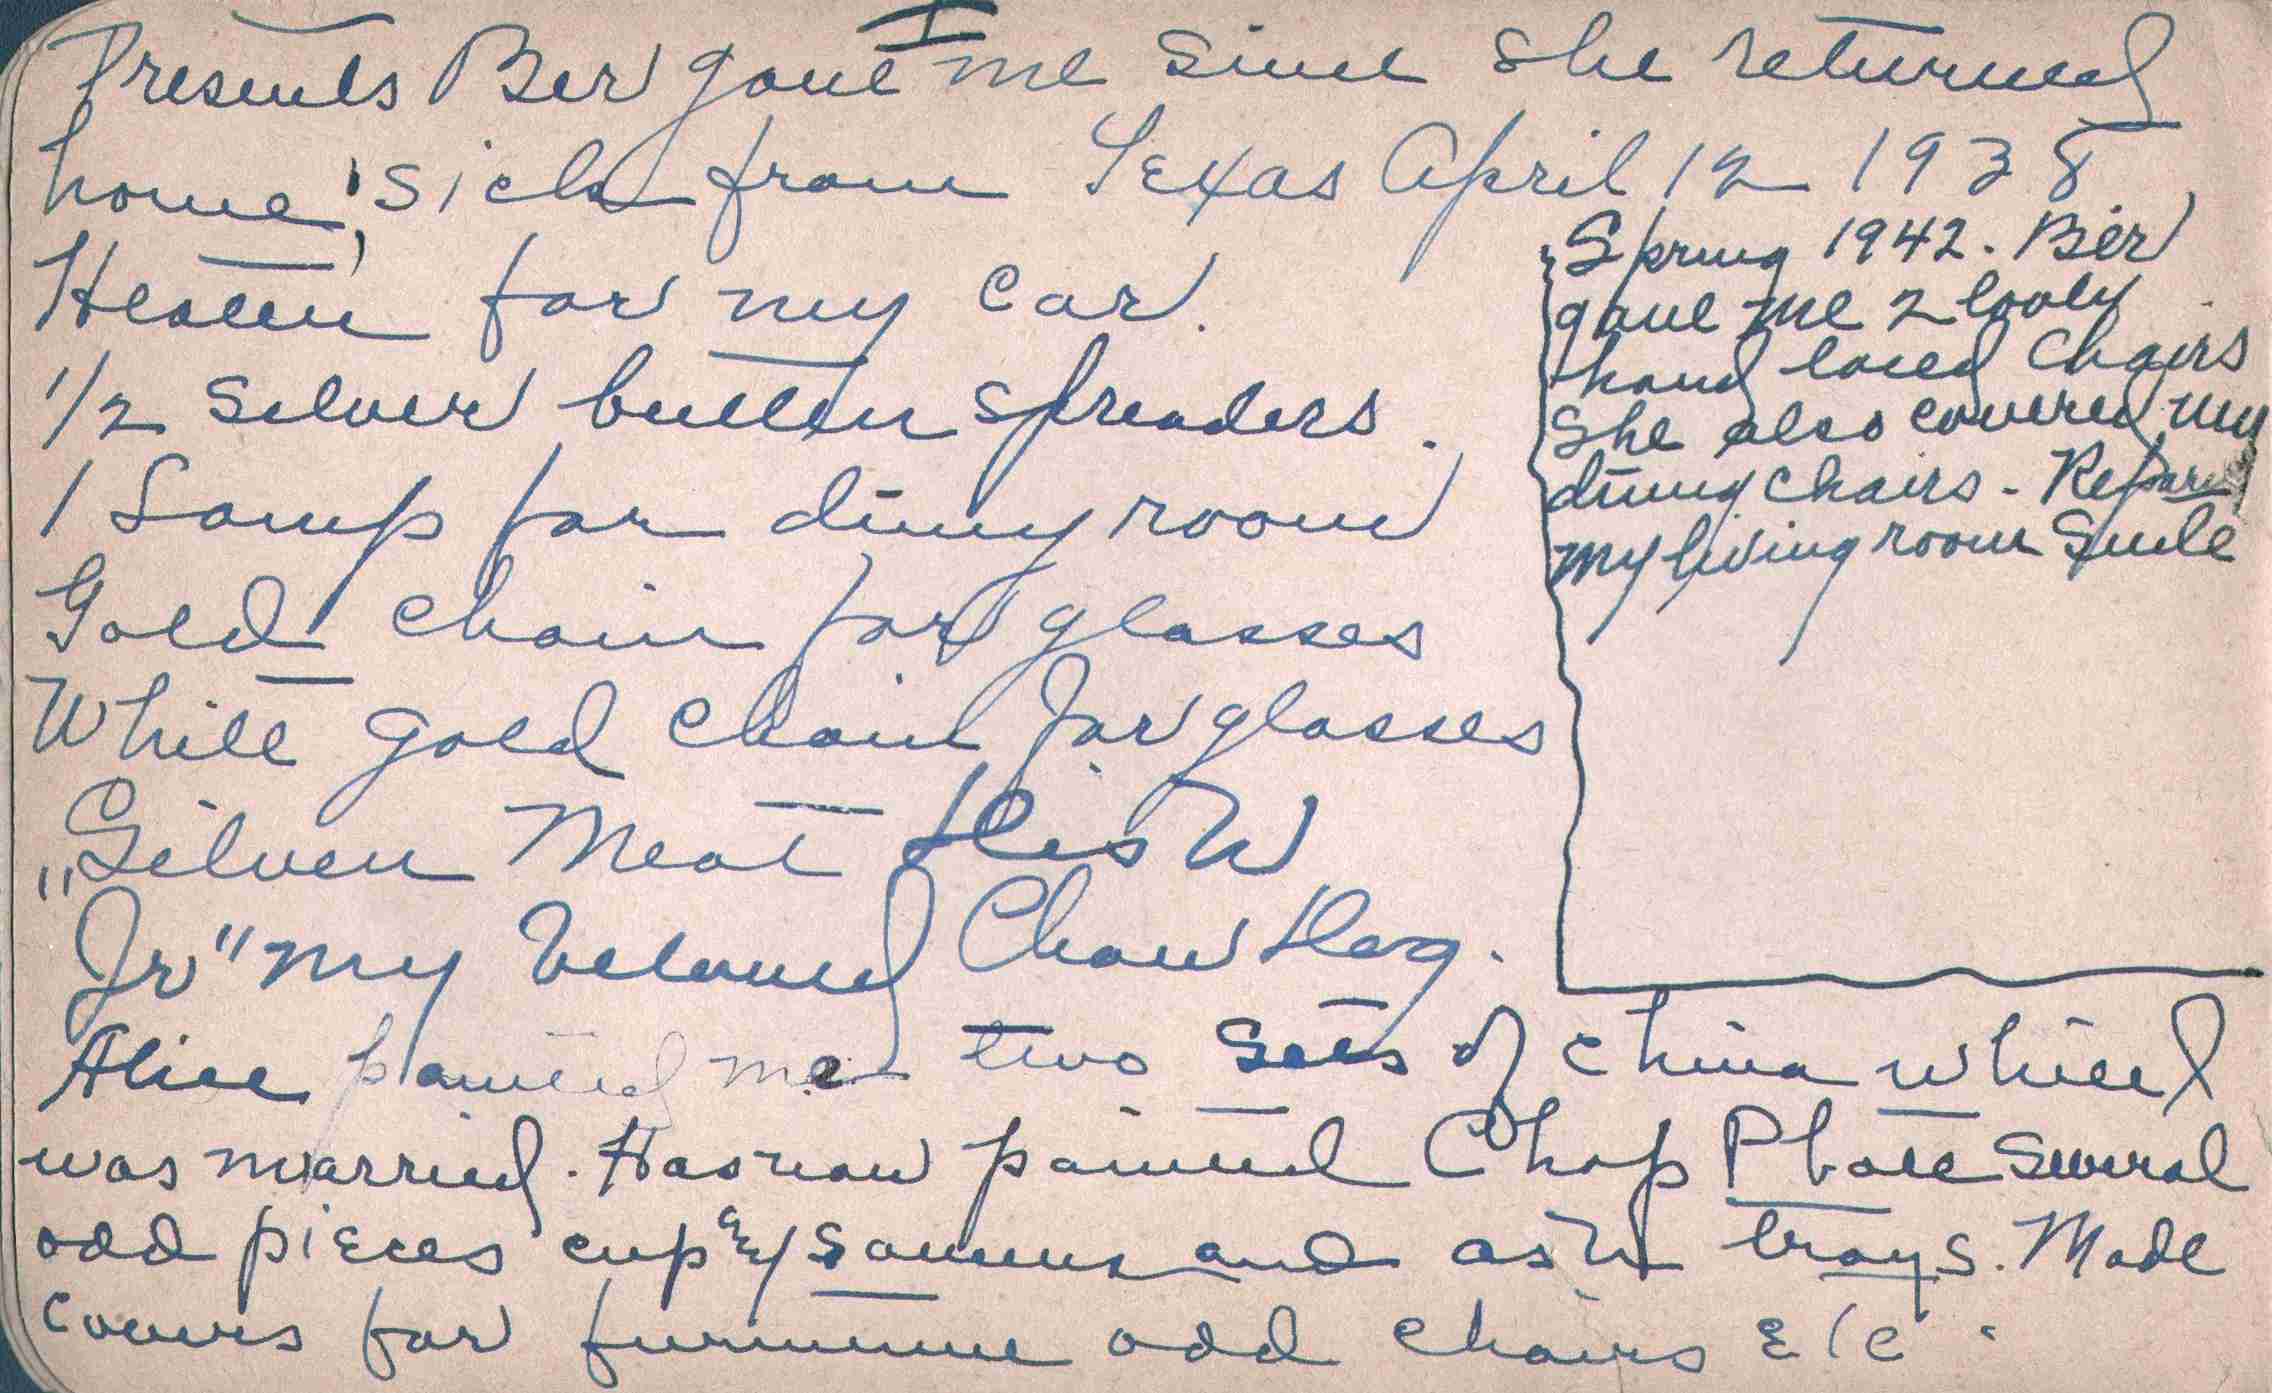 Presents Ber gave me since she returned
home, sick from Texas April 12 1938
Heater for my car.
1/2 silver butter spreaders.
1 Lamp for dining room
Gold chain for glasses
White gold chain for glasses
Silver Meat Dish
"Jr" my beloved Chow Dog.
Alice painted me two sets of china while I
was married. Has now painted Chop Plate several
odd pieces cup & saucers and ash trays. Made
covers for furniture odd chairs etc.
Spring 1942. Ber
gave me 2 lovely
hand laced chairs
She also covered my
dining chairs - Repair
my living room Suite